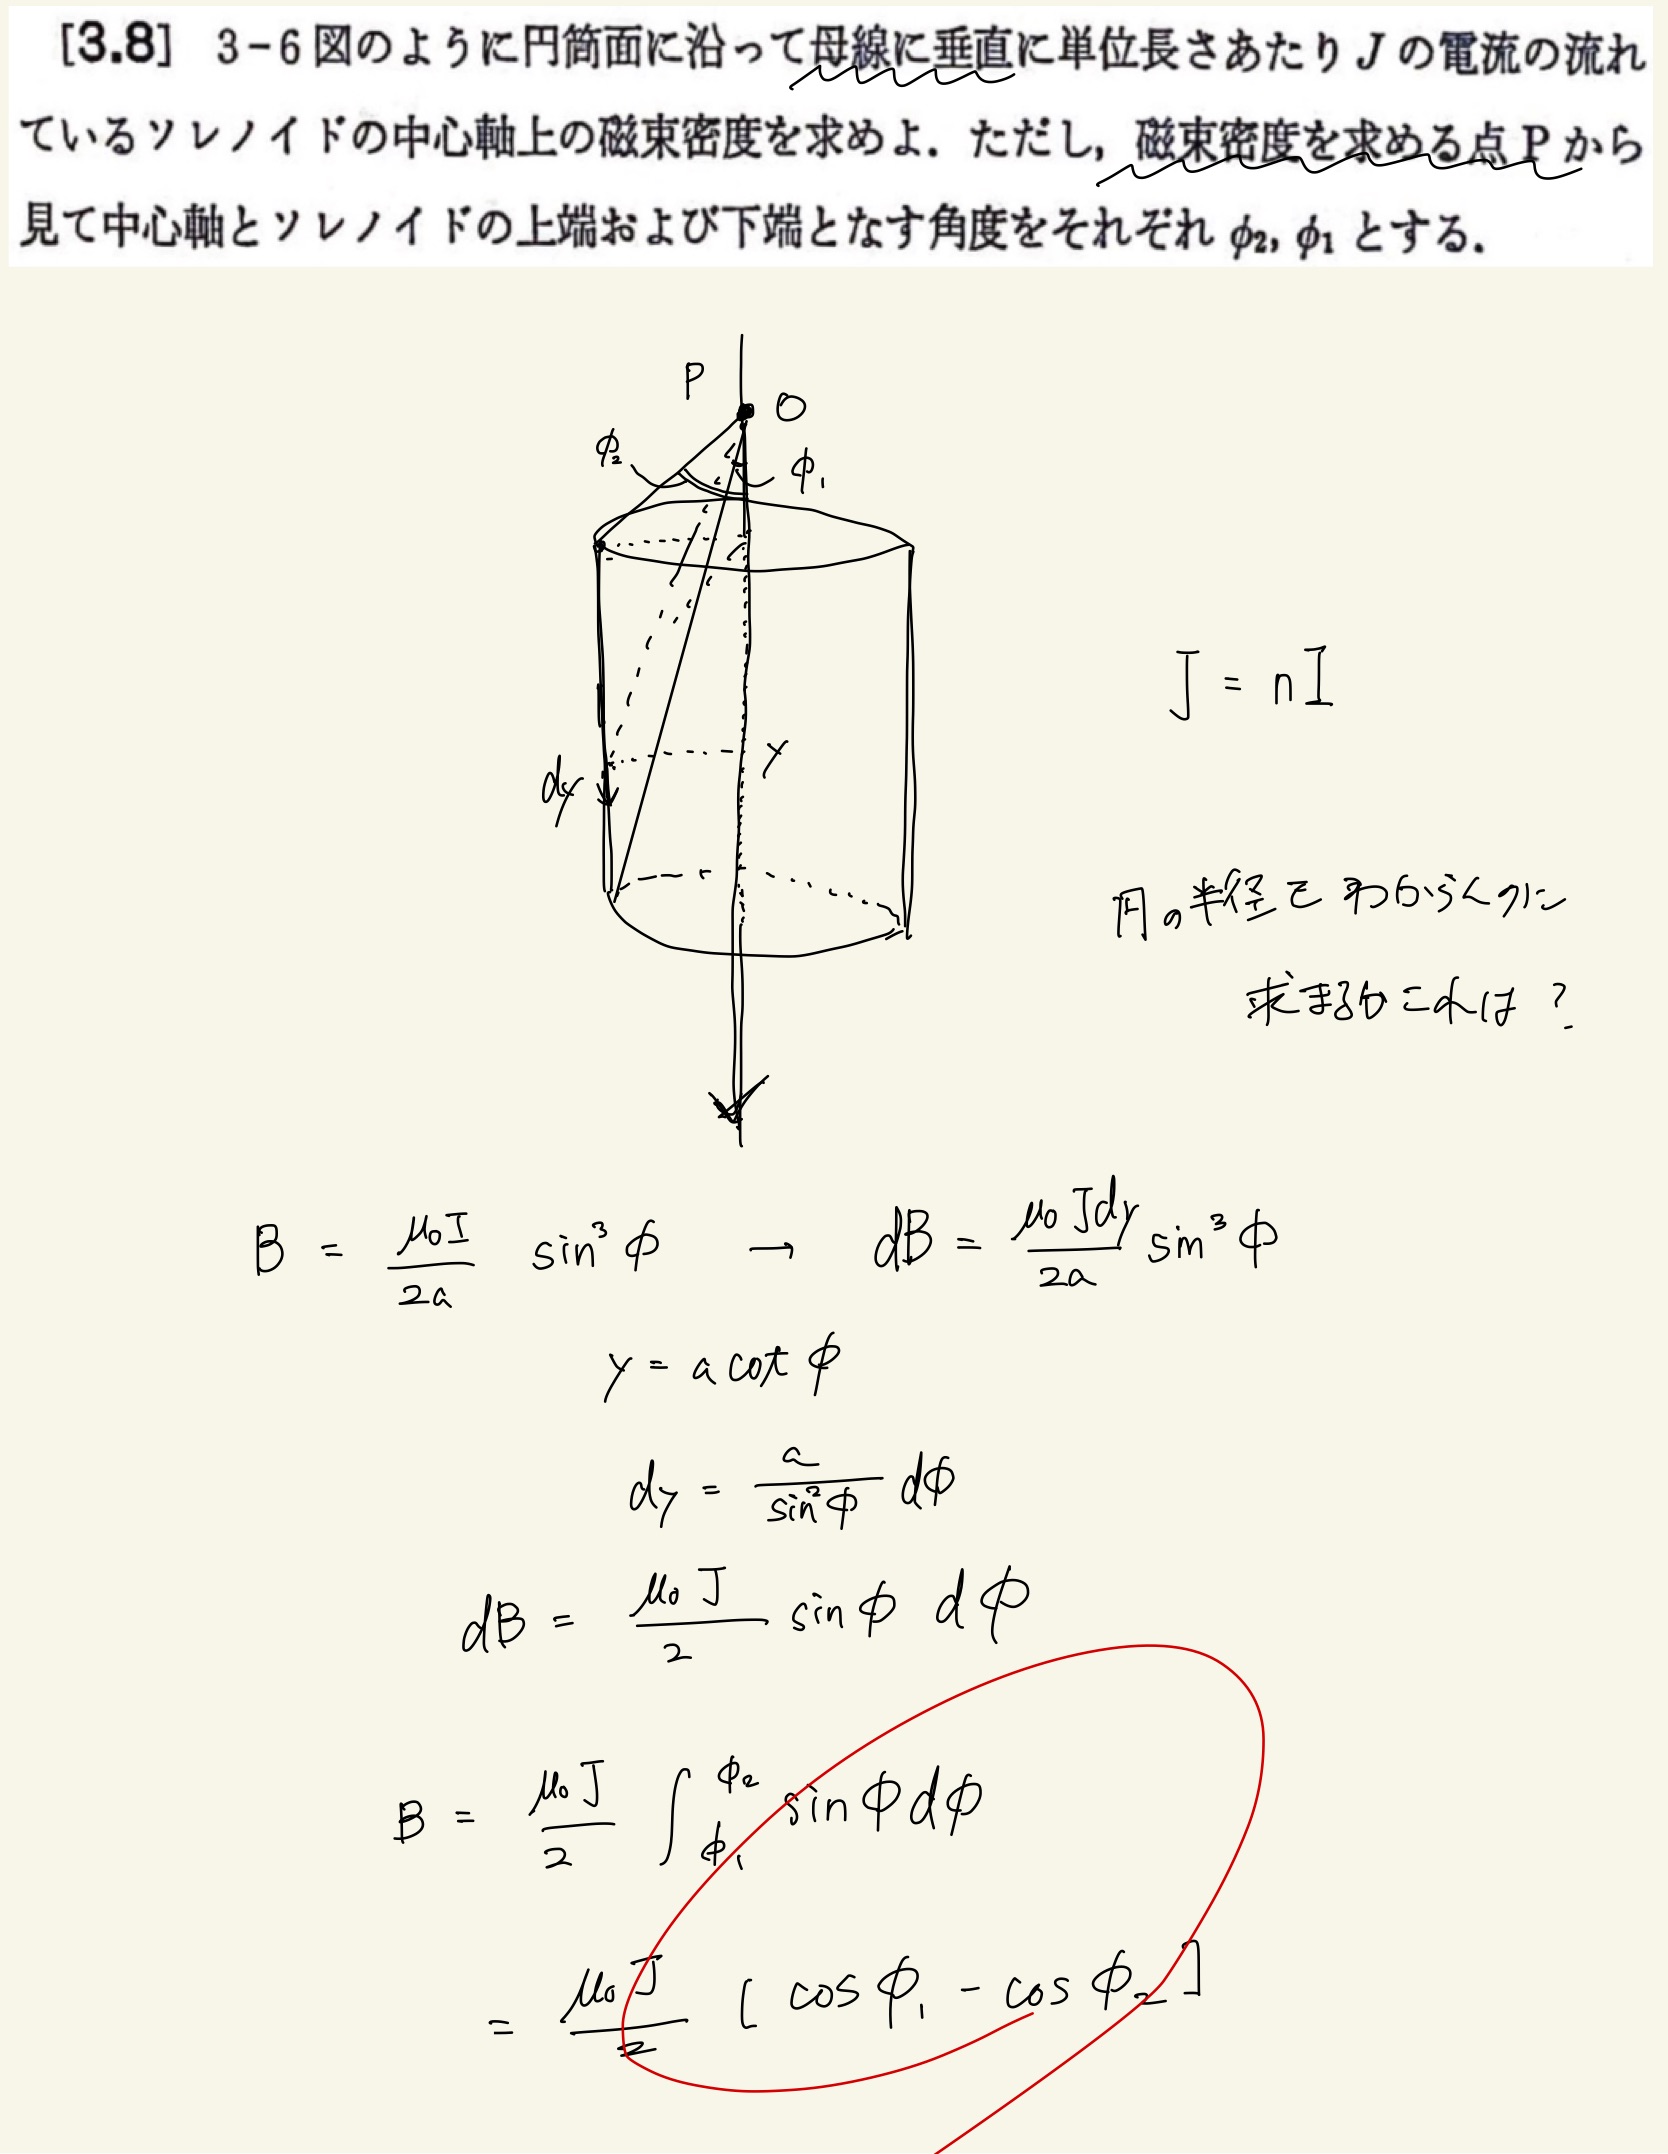 [3.8] 3-6図のように円筒面に沿って母線に垂直に単位長さあたり J の電流の流れ
ているソレノイドの中心軸上の磁束密度を求めよ．ただし，磁束密度を求める点 P から
見て中心軸とソレノイドの上端および下端となす角度をそれぞれ φ₂, φ₁ とする．
P
O
φ₂
φ₁
J = nI
y
dy
円の半径をわからんのに
求まるかこれは?
B = μ₀I/2a sin³φ → dB = μ₀Jdy/2a sin³φ
y = a cot φ
dy = a/sin²φ dφ
dB = μ₀J/2 sinφ dφ
B = μ₀J/2 ∫φ₁^φ₂ sinφdφ
= μ₀J/2 [cosφ₁ - cosφ₂]